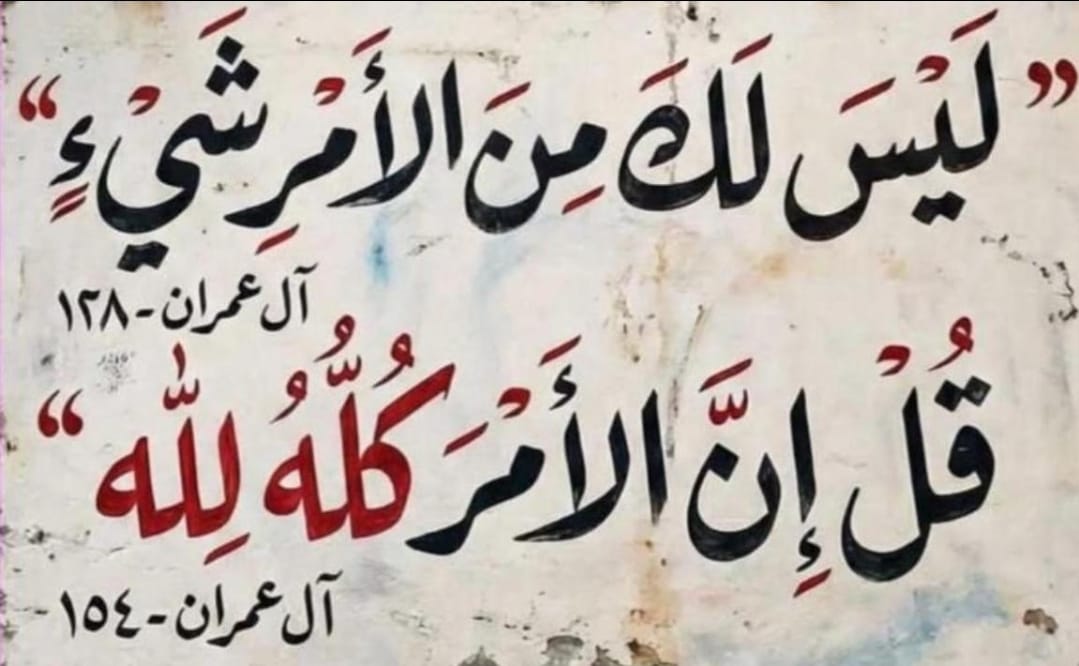 ”لَيْسَ لَكَ مِنَ الأَمْرِ شَيْءٍ“
آل عمران - ١٢٨
قُلْ إِنَّ الأَمْرَ كُلُّهُ لِلّٰه“
آل عمران - ١٥٤